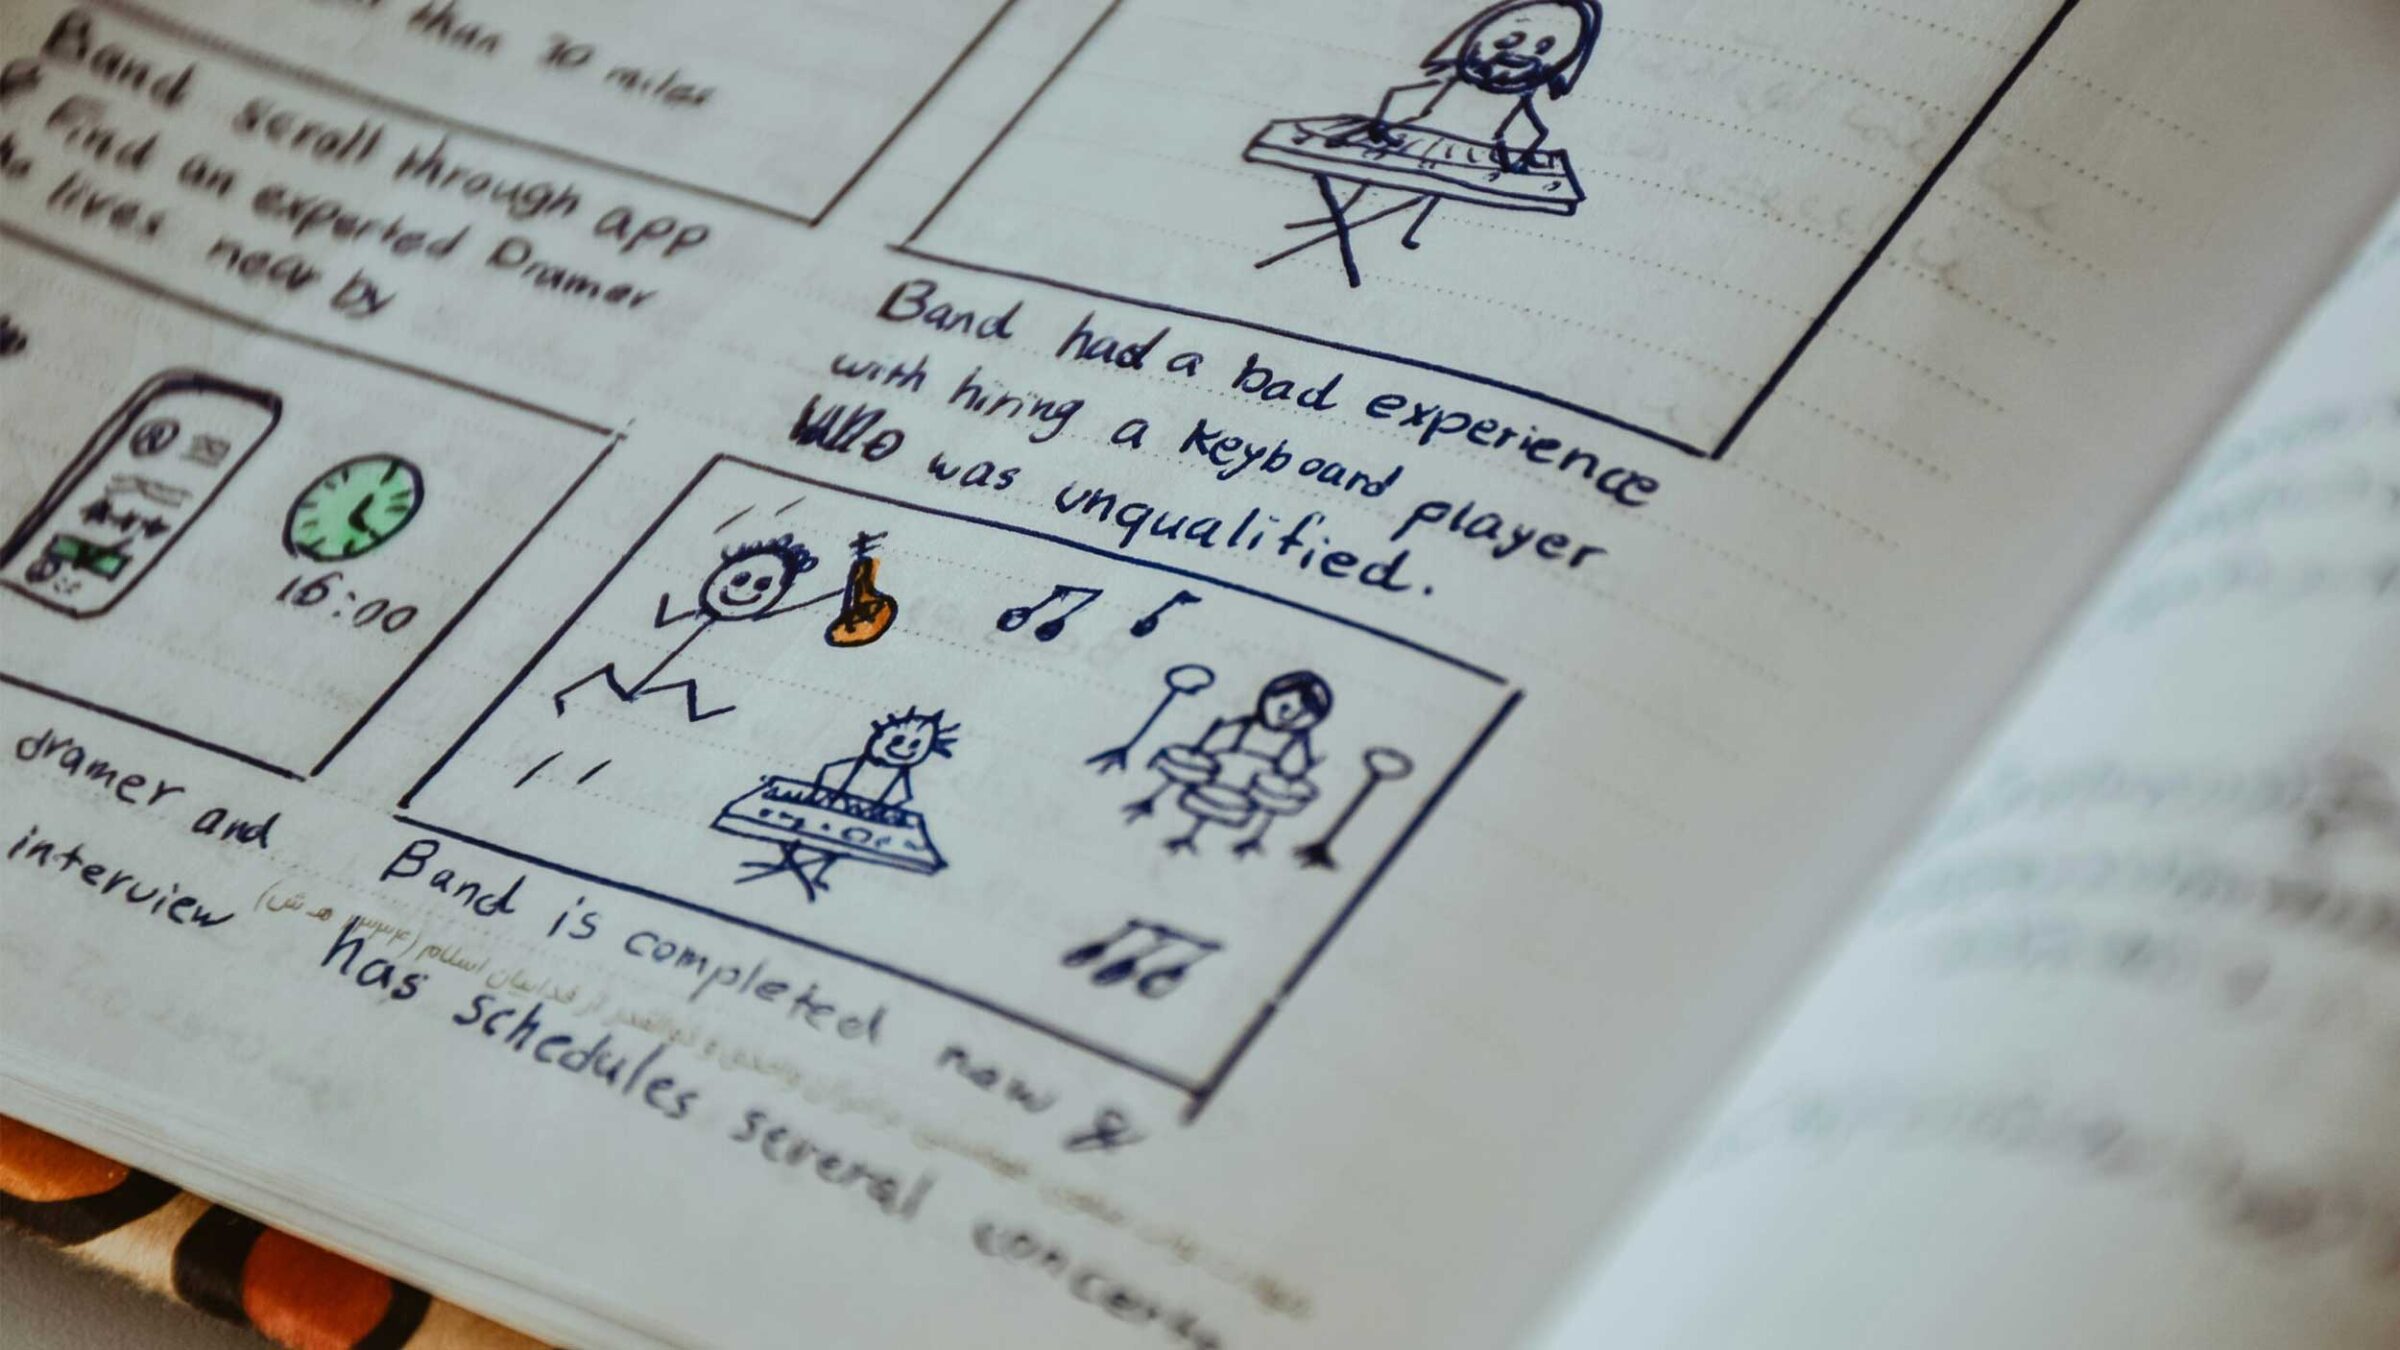 than 30 miles
Band scroll through app
Find an experted Dramer
lives near by
Band had a bad experience
with hiring a Keyboard player
who was unqualified.
16:00
dramer and
interview
Band is completed now &
has schedules several concerts